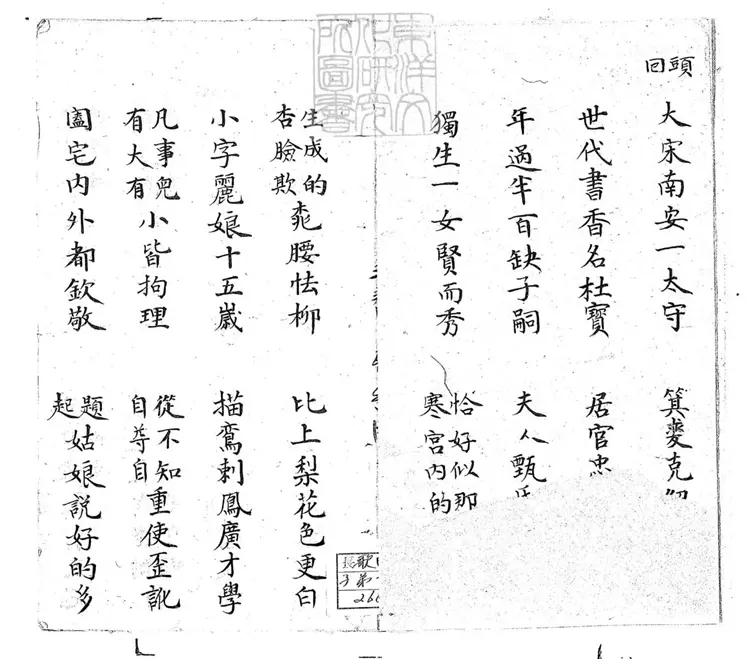 東洋文
化研究
所圖書
頭回
大宋南安一太守 箕裘克
世代書香名杜寶 居官忠
年過半百缺子嗣 夫人甄
獨生一女賢而秀 恰好似那寒宮內的
生成的杏臉欺桃腰怯柳 比上梨花色更白
小字麗娘十五歲 描鸞刺鳳廣才學
凡事兒有大有小皆拘理 從不知自尊自重使歪訛
闔宅內外都欽敬 題起姑娘說好的多